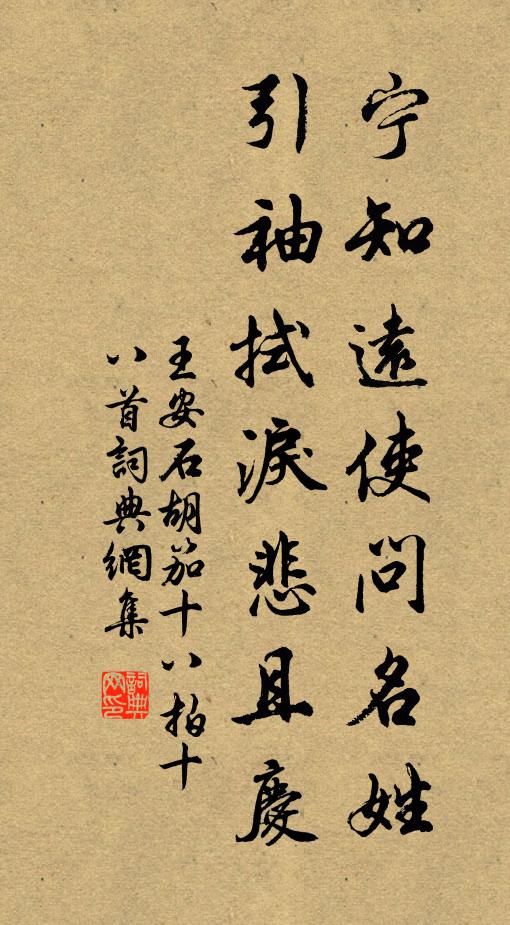 宁知遠使問名姓
引袖拭淚悲且慶
王安石胡笳十八拍十
八首詞典網集
詞典
网印